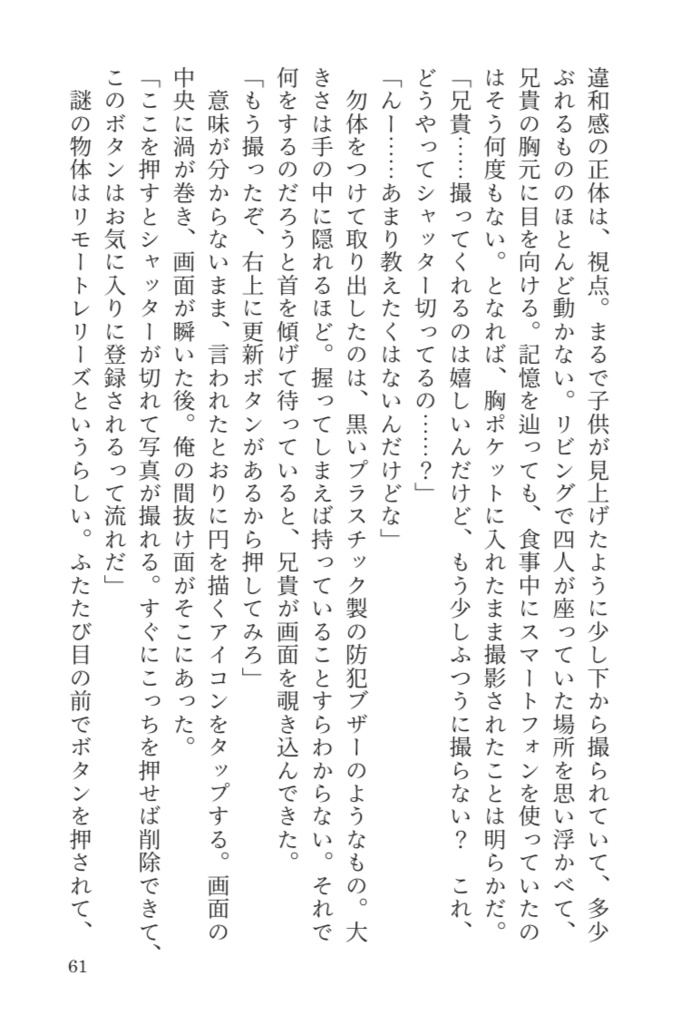 違和感の正体は、視点。まるで子供が見上げたように少し下から撮られていて、多少
ぶれるもののほとんど動かない。リビングで四人が座っていた場所を思い浮かべて、
兄貴の胸元に目を向ける。記憶を辿っても、食事中にスマートフォンを使っていたの
はそう何度もない。となれば、胸ポケットに入れたまま撮影されたことは明らかだ。
「兄貴……撮ってくれるのは嬉しいんだけど、もう少しふつうに撮らない？　これ、
どうやってシャッター切ってるの……？」
「んー……あまり教えたくはないんだけどな」
　勿体をつけて取り出したのは、黒いプラスチック製の防犯ブザーのようなもの。大
きさは手の中に隠れるほど。握ってしまえば持っていることすらわからない。それで
何をするのだろうと首を傾げて待っていると、兄貴が画面を覗き込んできた。
「もう撮ったぞ、右上に更新ボタンがあるから押してみろ」
　意味が分からないまま、言われたとおりに円を描くアイコンをタップする。画面の
中央に渦が巻き、画面が瞬いた後。俺の間抜け面がそこにあった。
「ここを押すとシャッターが切れて写真が撮れる。すぐにこっちを押せば削除できて、
このボタンはお気に入りに登録されるって流れだ」
　謎の物体はリモートレリーズというらしい。ふたたび目の前でボタンを押されて、
61